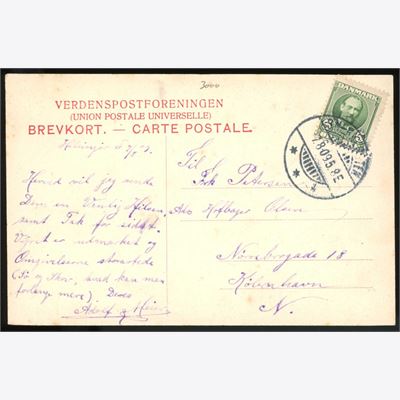 3000
VERDENSPOSTFORENINGEN
(UNION POSTALE UNIVERSELLE)
BREVKORT. — CARTE POSTALE.
DANMARK
Helsingør d.
Hermed vil jeg sende
Dem en Venlig Hilsen,
samt Tak for sidst.
Vejret er udmærket og
Omgivelserne storartede
(Sø og Skov, hvad kan man
forlange mere). Deres
Adolf og
Til
Frk Petersen
Adr Hofbager Olsen
Nørrebrogade 18
København
N.